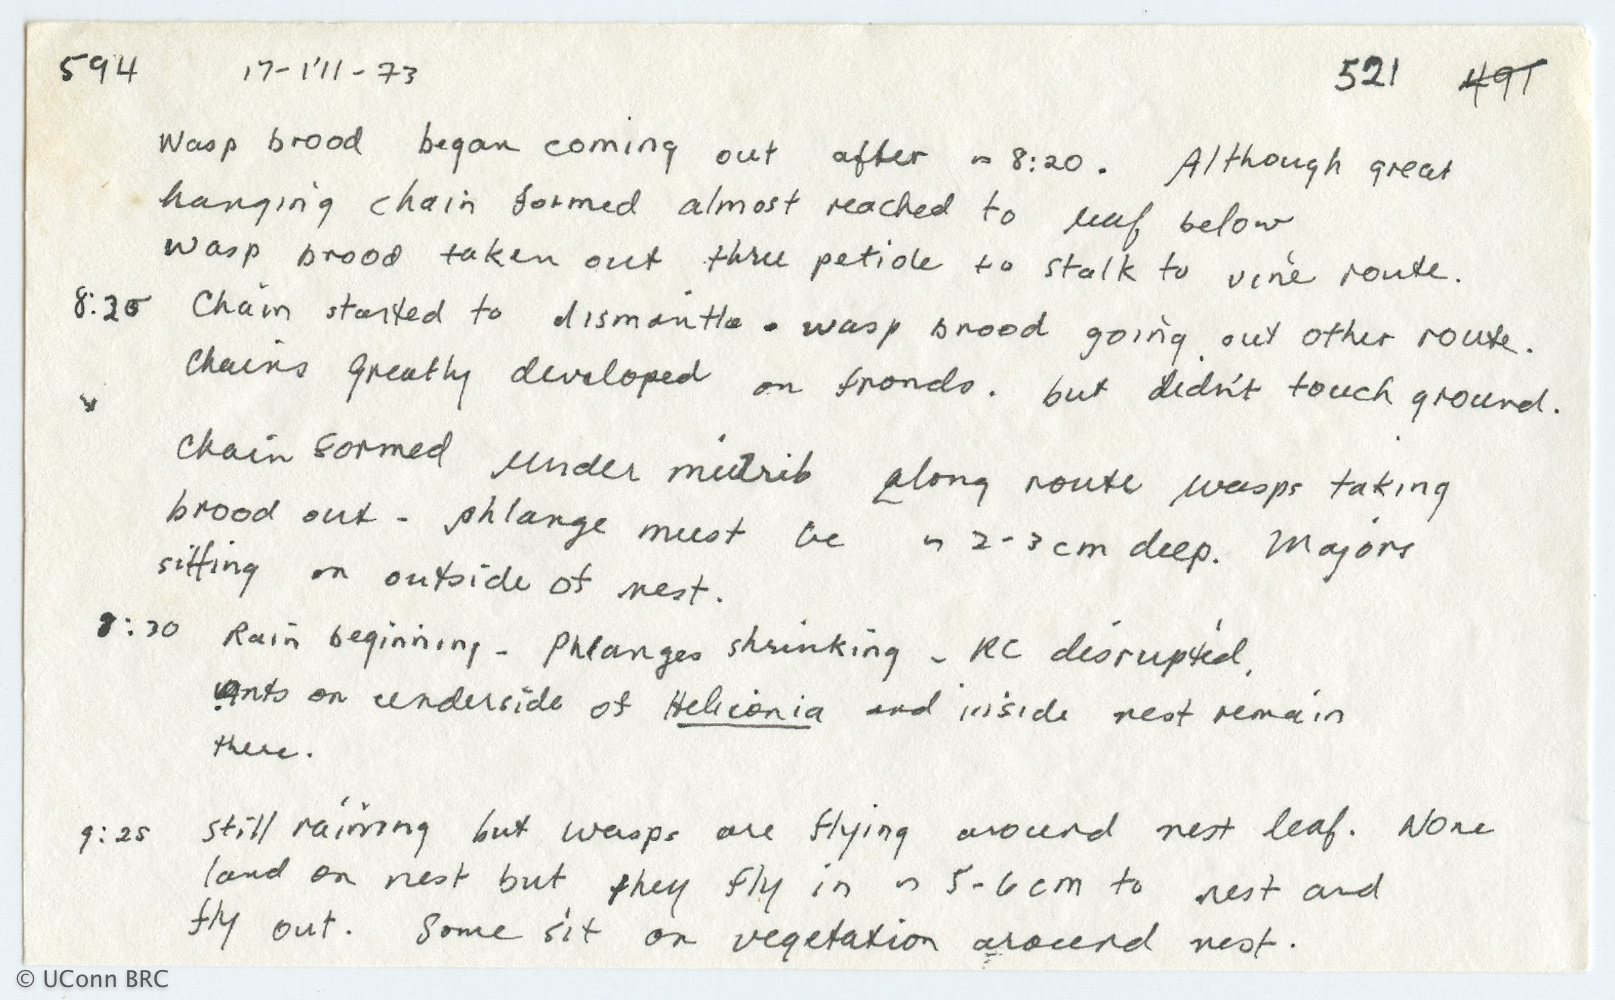 594 17-III-73 521 491
Wasp brood began coming out after ~ 8:20. Although great
hanging chain formed almost reached to leaf below
wasp brood taken out thru petiole to stalk to vine route.
8:25 Chain started to dismantle. wasp brood going out other route.
Chains greatly developed on fronds. but didn't touch ground.
Chain formed under midrib along route wasps taking
brood out - phlange must be ~ 2-3 cm deep. Majors
sitting on outside of nest.
8:30 Rain beginning - Phlanges shrinking - RC disrupted,
ants on underside of Heliconia and inside nest remain
there.
9:25 still raining but wasps are flying around nest leaf. None
land on nest but they fly in ~ 5-6 cm to nest and
fly out. Some sit on vegetation around nest.
© UConn BRC